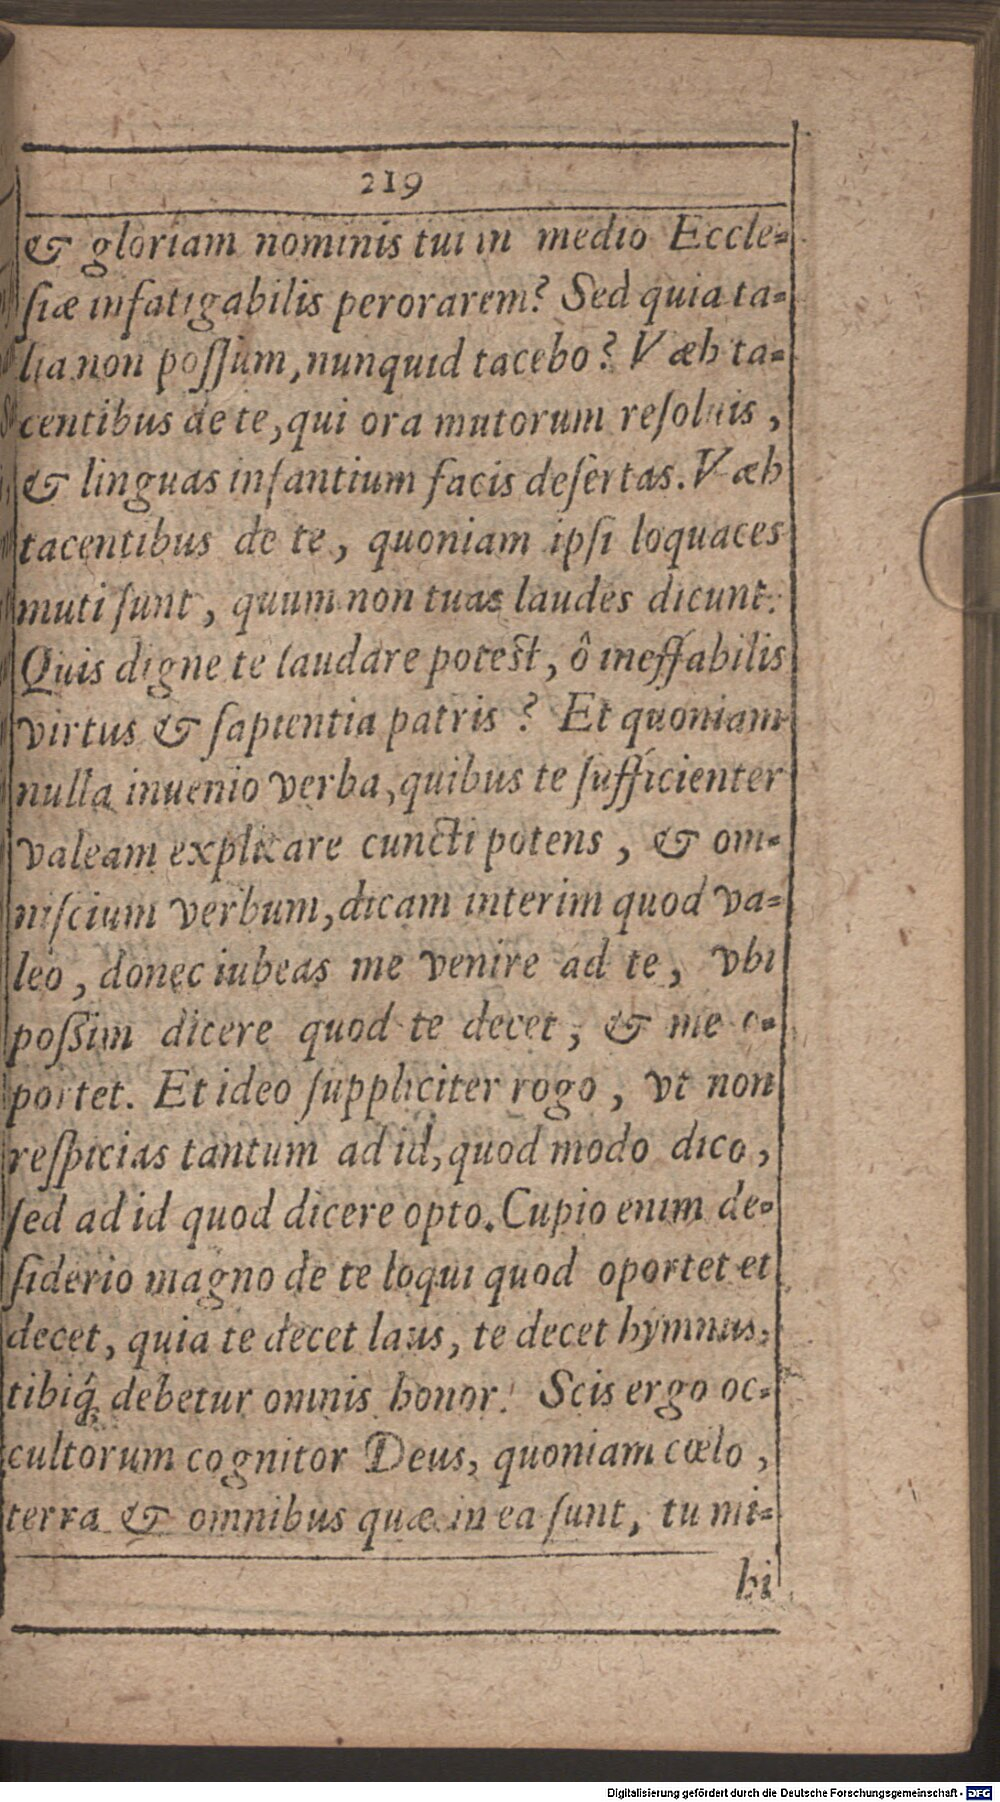 219
& gloriam nominis tui in medio Eccle-
ſiæ infatigabilis perorarem? Sed quia ta-
lia non poſſum, nunquid tacebo? Væh ta-
centibus de te, qui ora mutorum reſoluis,
& linguas infantium facis deſertas. Væh
tacentibus de te, quoniam ipſi loquaces
muti ſunt, quum non tuas laudes dicunt.
Quis digne te laudare poteſt, ô ineffabilis
virtus & ſapientia patris? Et quoniam
nulla inuenio verba, quibus te ſufficienter
valeam explicare cuncti potens, & om-
niſcium verbum, dicam interim quod va-
leo, donec iubeas me venire ad te, vbi
poſſim dicere quod te decet, & me o-
portet. Et ideo ſuppliciter rogo, vt non
reſpicias tantum ad id, quod modo dico,
ſed ad id quod dicere opto. Cupio enim de-
ſiderio magno de te loqui quod oportet et
decet, quia te decet laus, te decet hymnus,
tibiq́; debetur omnis honor. Scis ergo oc-
cultorum cognitor Deus, quoniam cœlo,
terra & omnibus quæ in ea ſunt, tu mi-
hi
Digitalisierung gefördert durch die Deutsche Forschungsgemeinschaft - DFG